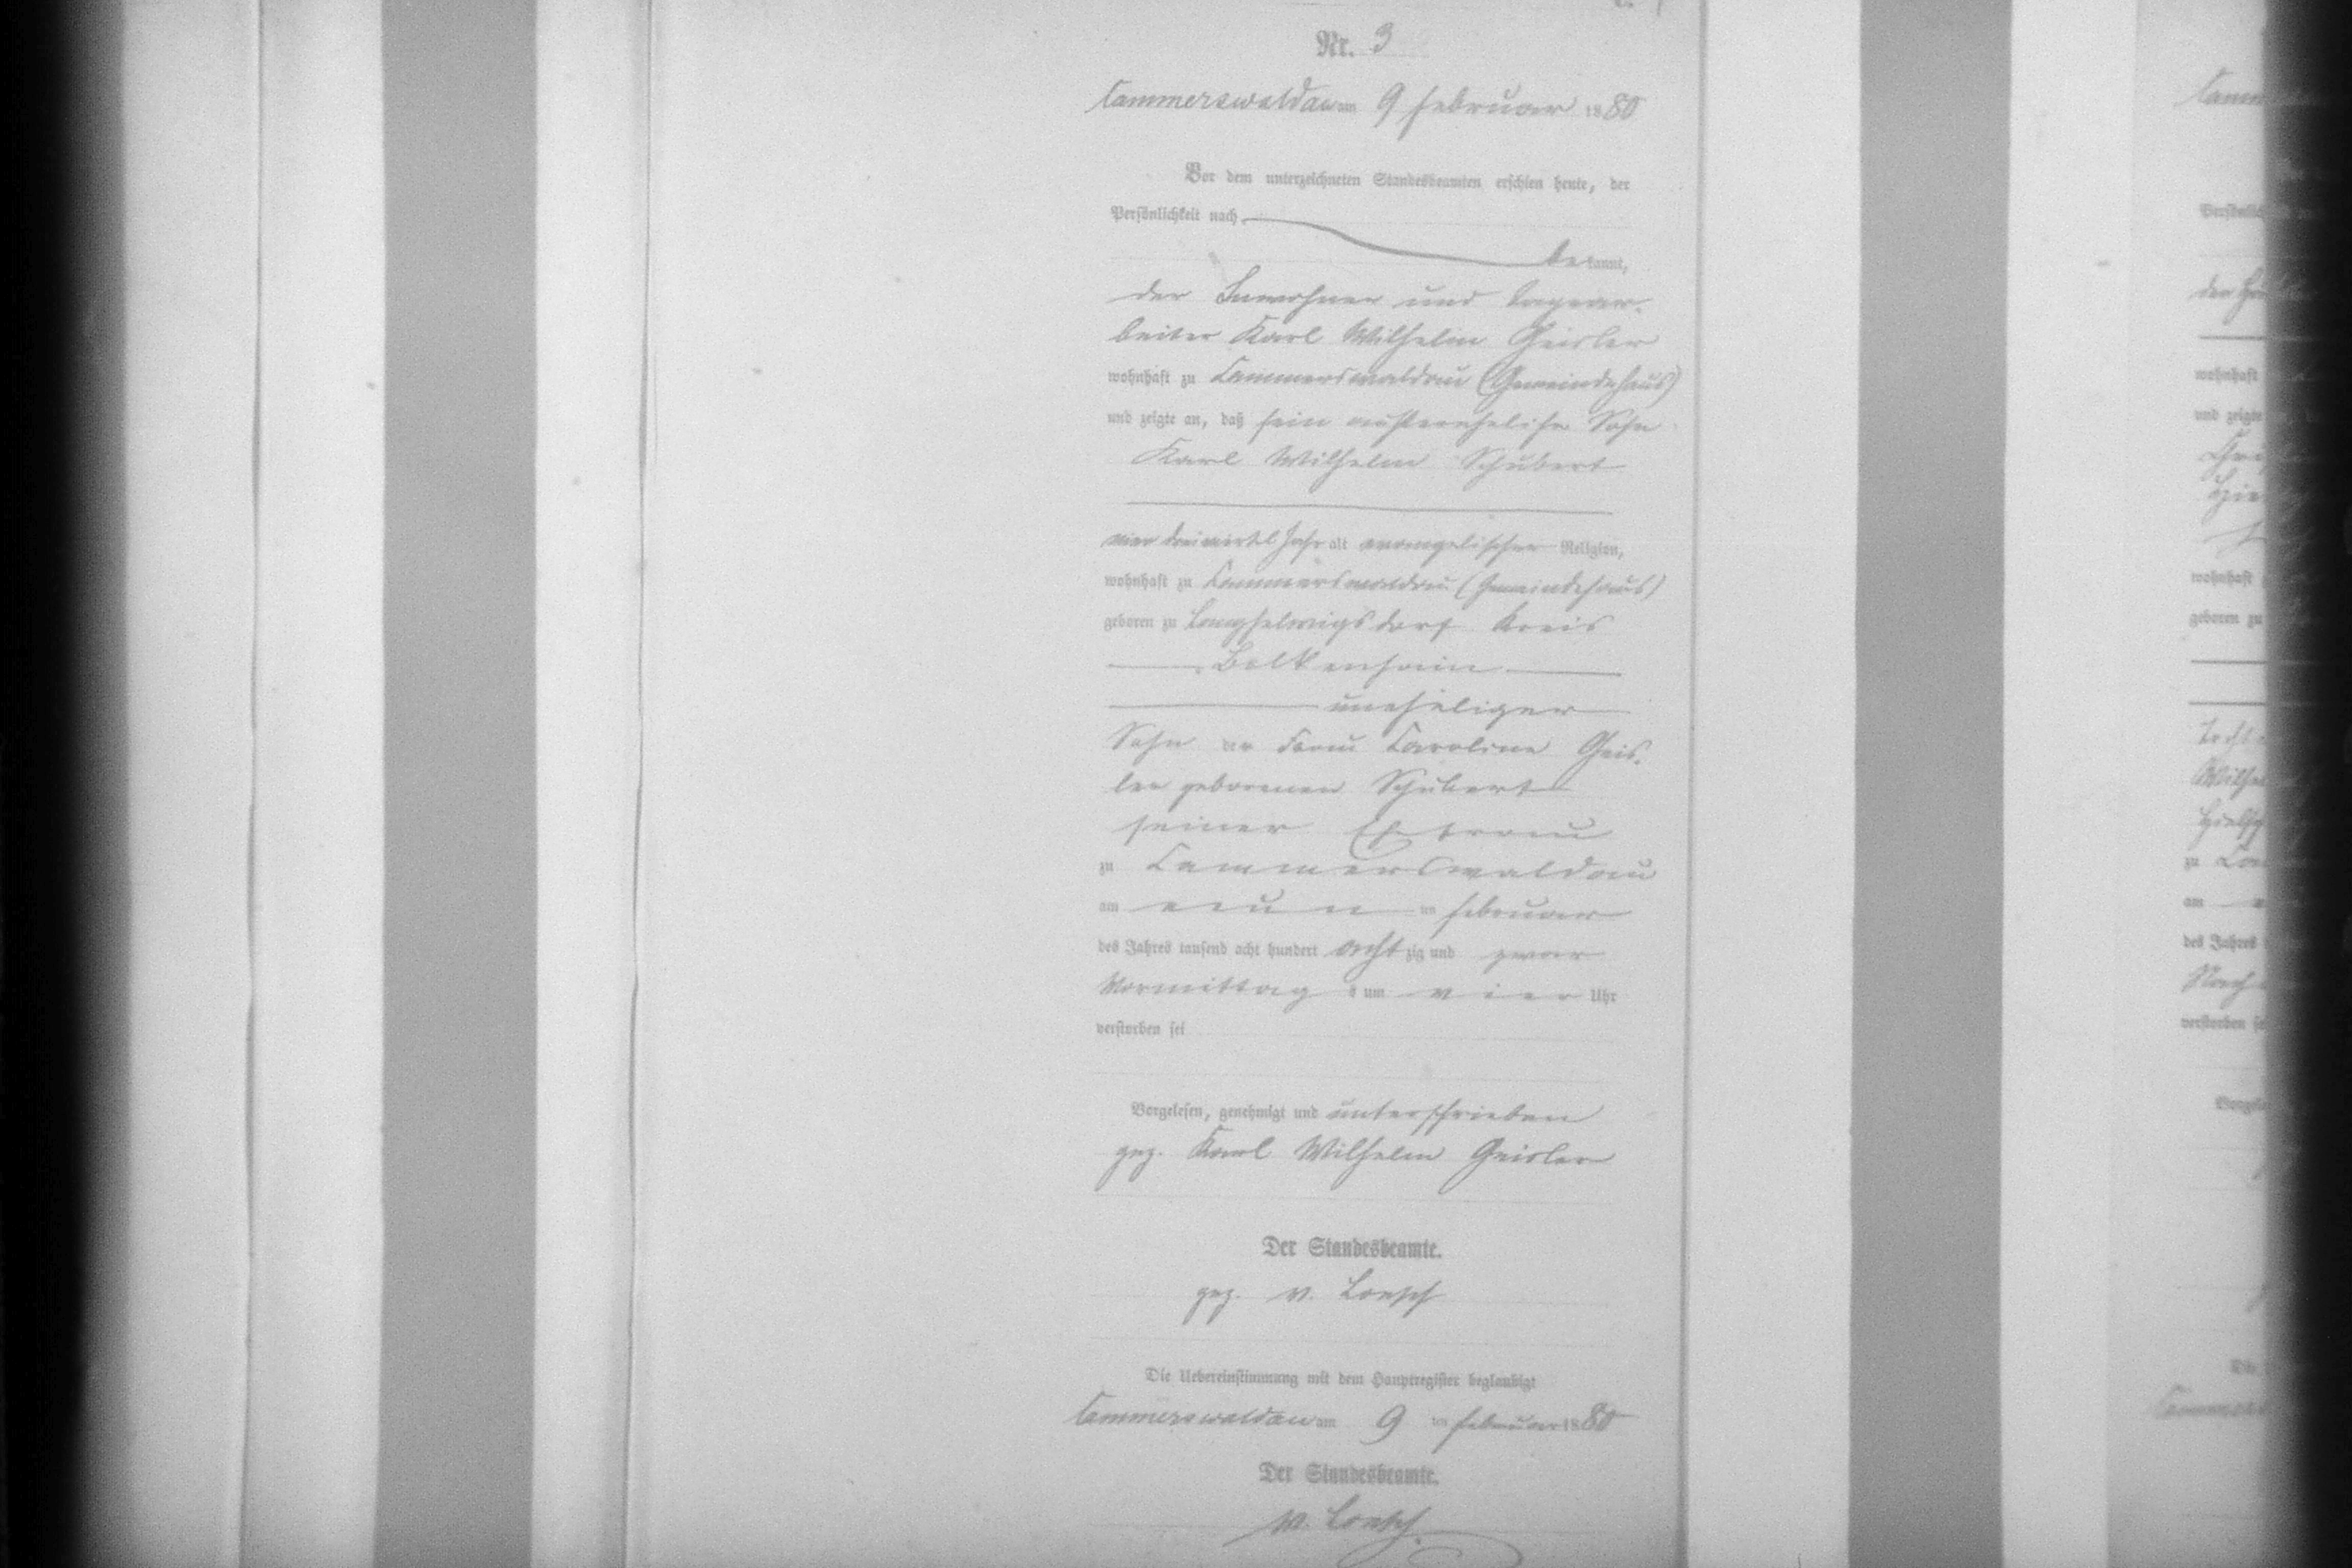 Nr. 3
Cammerswaldau am 9 Februar 1880
Vor dem unterzeichneten Standesbeamten erschien heute, der
Persönlichkeit nach
bekannt,
der Inwohner und Tagear-
beiter Karl Wilhelm Geisler
wohnhaft zu Cammerswaldau (Gemeindehaus)
und zeigte an, daß sein außereheliche Sohn
Karl Wilhelm Schubert
vier dreiviertel Jahr alt evangelischer Religion,
wohnhaft zu Cammerswaldau (Gemeindehaus)
geboren zu Langhelwigsdorf Kreis
Bolkenhain
uneheliger
Sohn der Frau Caroline Geis-
ler geborenen Schubert
seiner Ehefrau
zu Cammerswaldau
am neun ten Februar
des Jahres tausend acht hundert achtzig und zwar
Vormittags um vier Uhr
verstorben sei
Vorgelesen, genehmigt und unterschrieben
gez. Karl Wilhelm Geisler
Der Standesbeamte.
gez. v. Loesch
Die Uebereinstimmung mit dem Hauptregister beglaubigt
Cammerswaldau am 9 ten Februar 1880
Der Standesbeamte.
v. Loesch